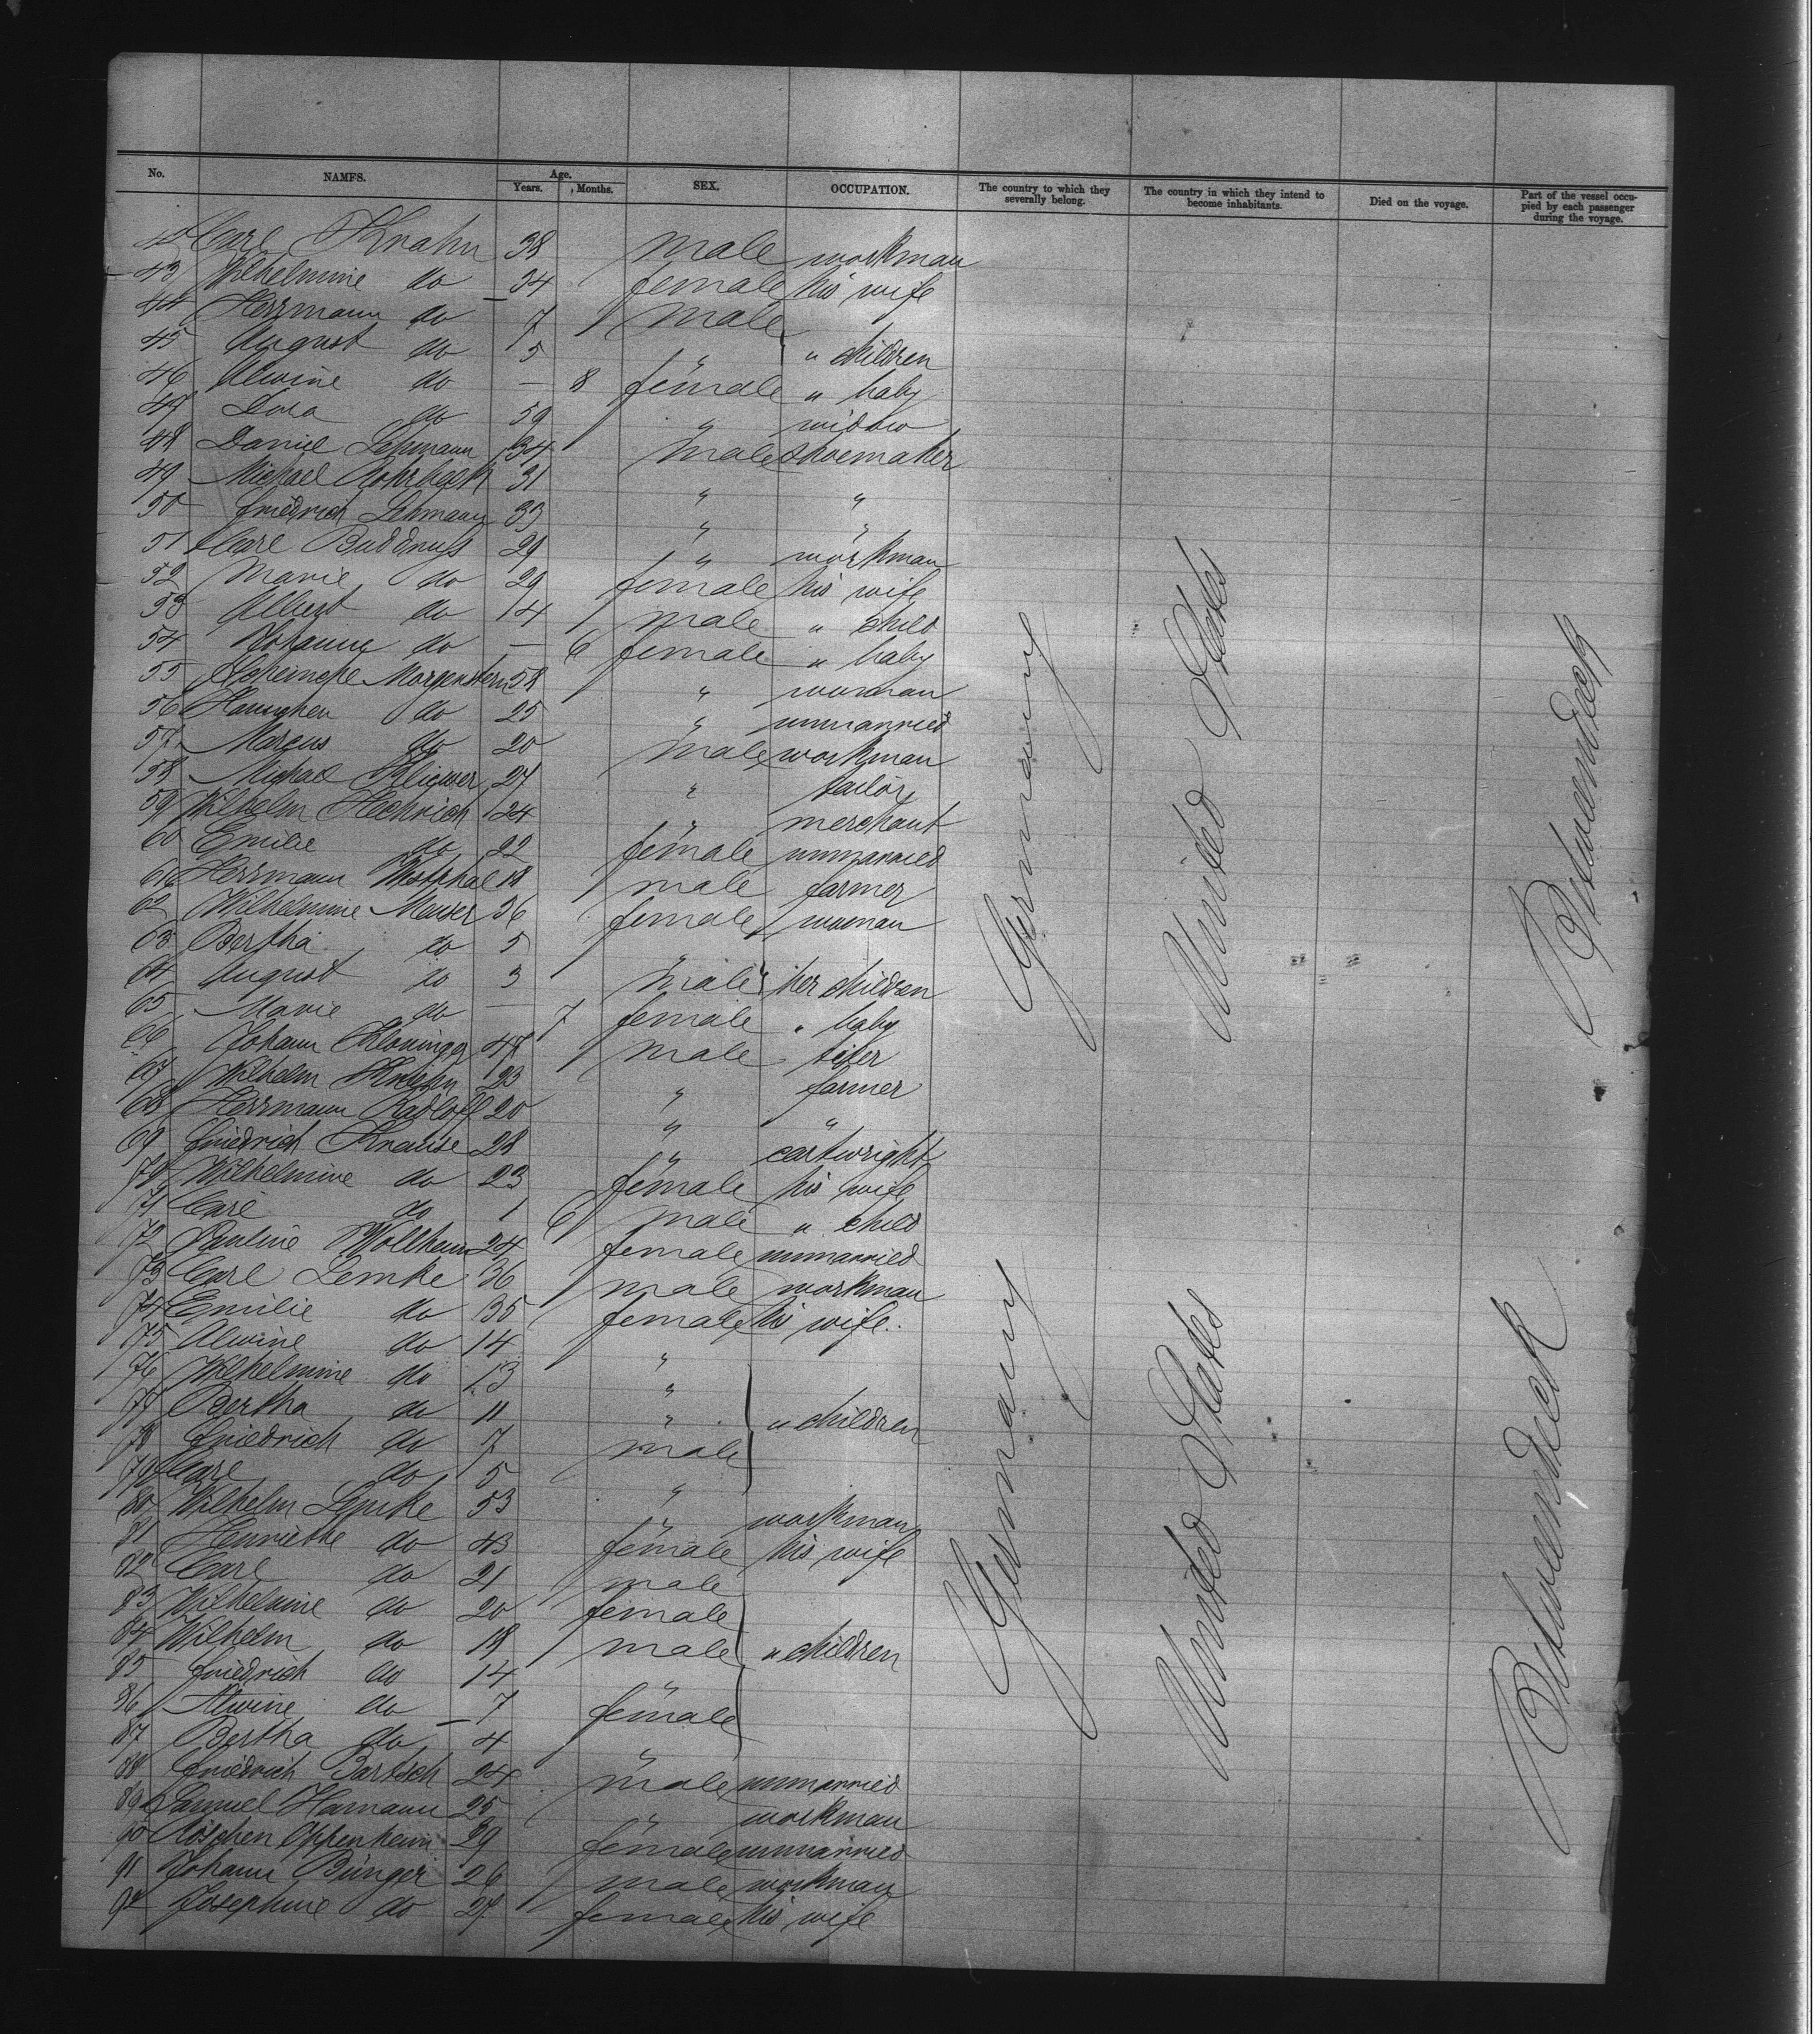 No. NAMES. Age. Years. Months. SEX. OCCUPATION. The country to which they severally belong. The country in which they intend to become inhabitants. Died on the voyage. Part of the vessel occupied by each passenger during the voyage.
42 Carl Krahn 38 male workman
43 Wilhelmine do 34 female his wife
44 Herrmann do 7 male
45 August do 5 " " children
46 Alwine do — 8 female " baby
47 Dora do 59 " widow
48 Daniel Lehmann 34 male shoemaker
49 Michael Rohrbach 31 " "
50 Friedrich Lehmann 33 " "
51 Carl Buddruss 29 " workman
52 Marie do 29 female his wife
53 Albert do 14 male " child
54 Johanne do — 6 female " baby
55 Morgenstern 58 " woman
56 Hannchen do 25 " unmarried
57 Marcus do 20 male workman
58 Michael Kliewer 27 " tailor
59 Wilhelm Hechrich 24 " merchant
60 Emilie do 22 female unmarried
61 Herrmann Westphal 18 male farmer
62 Wilhelmine Mewer 36 female woman
63 Bertha do 5 "
64 August do 3 male her children
65 Marie do — 7 female " baby
66 Johann 48 male tiler
67 Wilhelm Kriehn 23 " farmer
68 Herrmann Radloff 20 " "
69 Friedrich Krause 28 " cartwright
70 Wilhelmine do 23 female his wife
71 Carl do 1 6 male " child
72 Pauline Wollheim 24 female unmarried
73 Carl Lemke 36 male workman
74 Emilie do 35 female his wife.
75 Alwine do 14 "
76 Wilhelmine do 13 "
77 Bertha do 11 " " children
78 Friedrich do 7 male
79 Carl do 5 "
80 Wilhelm Lemke 53 " workman
81 Henriette do 43 female his wife
82 Carl do 21 male
83 Wilhelmine do 20 female
84 Wilhelm do 18 male " children
85 Friedrich do 14 "
86 Alwine do 7 female
87 Bertha do 4 "
88 Friedrich Bartsch 24 male unmarried
89 Samuel Hamann 25 " workman
90 Röschen Oppenheim 29 female unmarried
91 Johann Bünger 26 male workman
92 Josephine do 27 female his wife
Germany United States Betweendeck
Germany United States Betweendeck